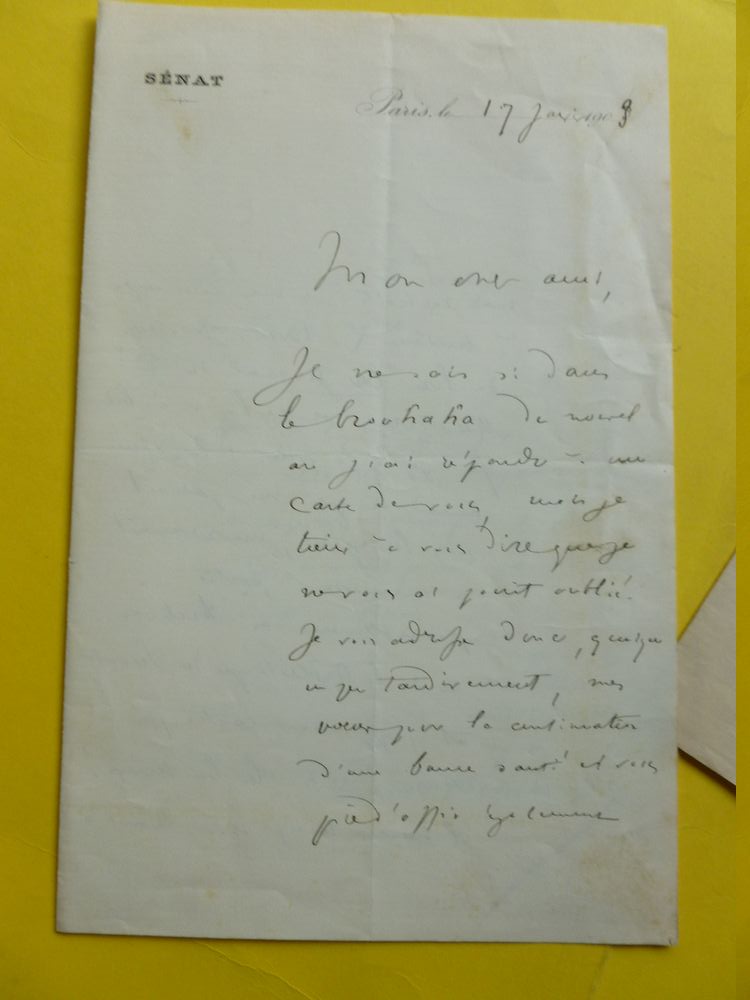 SÉNAT
Paris, le 17 Janvier 190
Mon cher ami,
Je ne sais si dans
le brouhaha du nouvel
an j'ai répondu à une
carte de vous, mais je
tiens à vous dire que je
ne vous ai point oublié.
Je vous adresse donc, quoique
un peu tardivement, mes
voeux pour la continuation
d'une bonne santé et vous
prie d' également